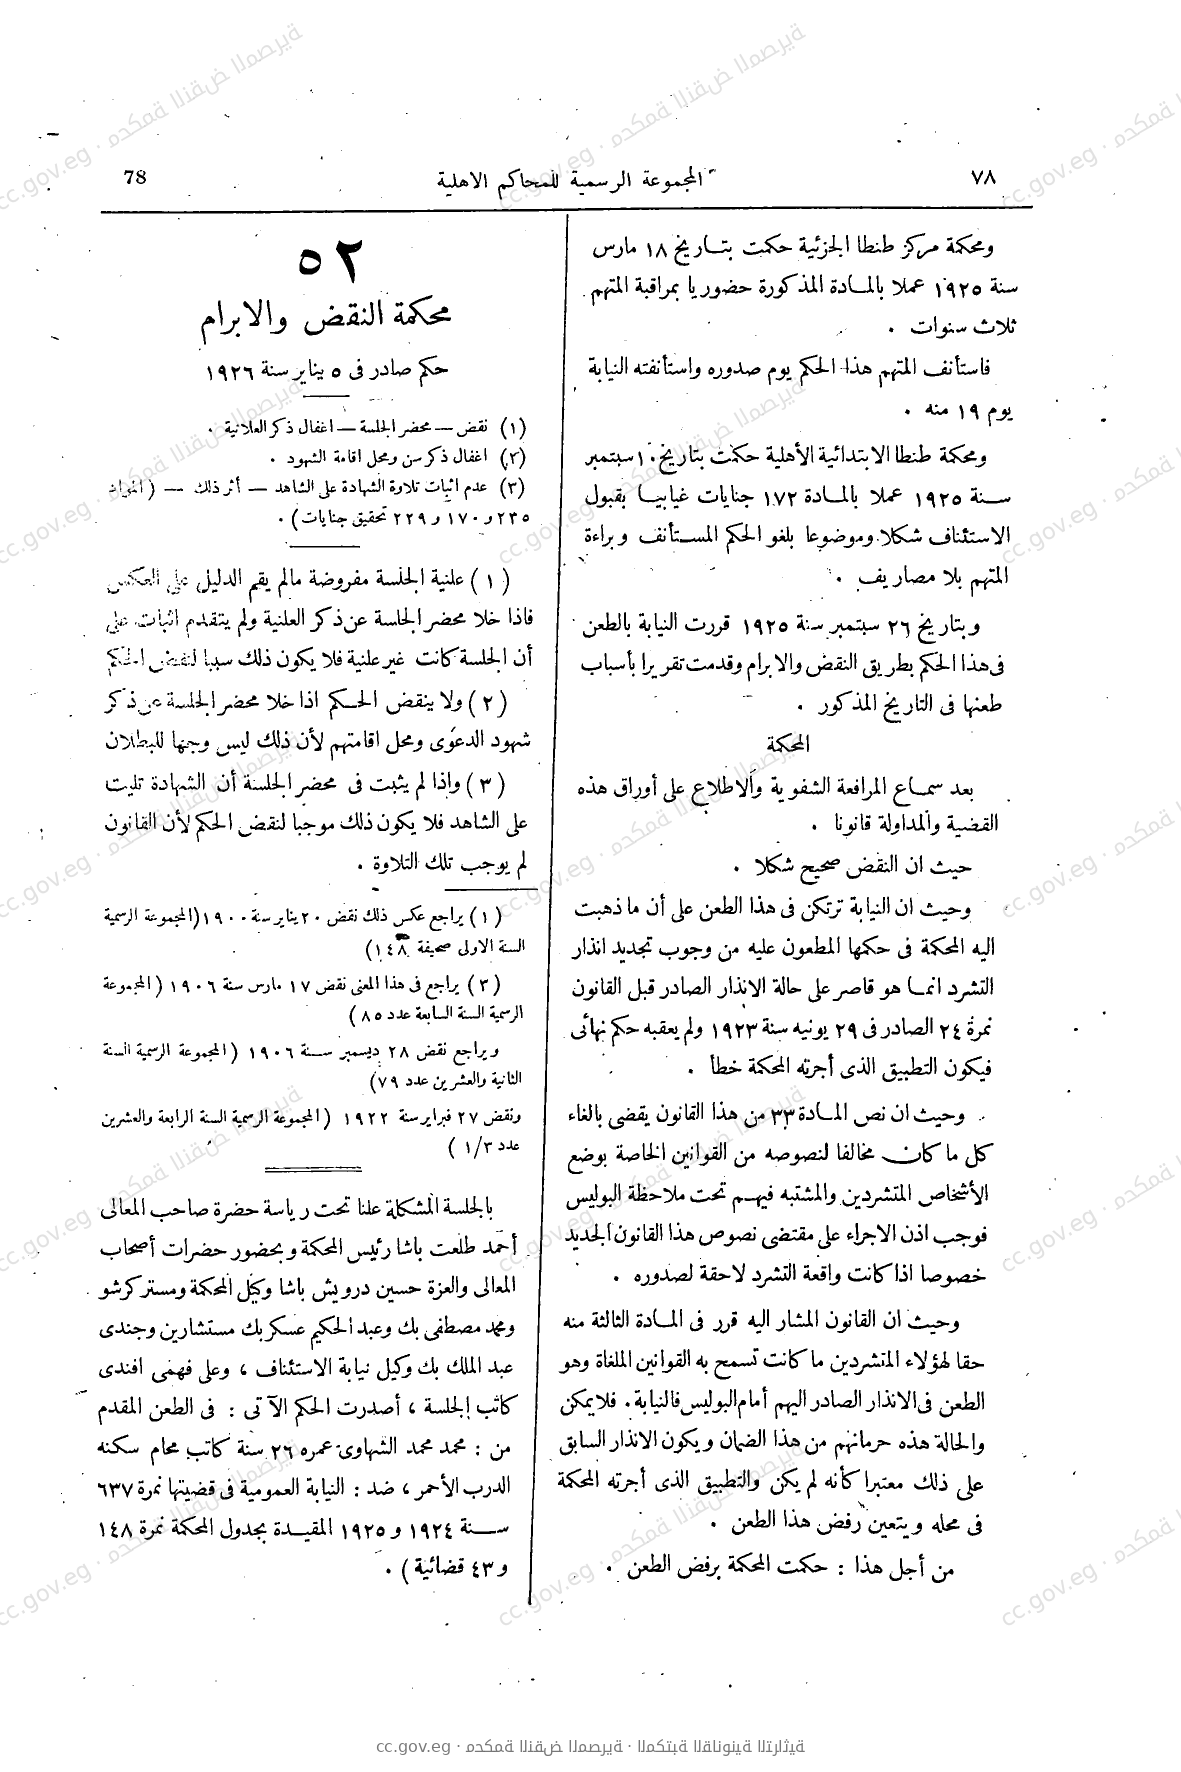 ٧٨
المجموعة الرسمية للمحاكم الاهلية
78
ومحكمة مركز طنطا الجزئية حكمت بتاريخ ١٨ مارس
سنة ١٩٢٥ عملا بالمادة المذكورة حضوريا بمراقبة المتهم
ثلاث سنوات .
فاستأنف المتهم هذا الحكم يوم صدوره واستأنفته النيابة
يوم ١٩ منه .
ومحكمة طنطا الابتدائية الأهلية حكمت بتاريخ ١٠ سبتمبر
سنة ١٩٢٥ عملا بالمادة ١٧٢ جنايات غيابيا بقبول
الاستئناف شكلا وموضوعا بلغو الحكم المستأنف وبراءة
المتهم بلا مصاريف .
وبتاريخ ٢٦ سبتمبر سنة ١٩٢٥ قررت النيابة بالطعن
فى هذا الحكم بطريق النقض والابرام وقدمت تقريرا بأسباب
طعنها فى التاريخ المذكور .
المحكمة
بعد سماع المرافعة الشفوية والاطلاع على أوراق هذه
القضية والمداولة قانونا .
حيث ان النقض صحيح شكلا .
وحيث ان النيابة ترتكن فى هذا الطعن على أن ما ذهبت
اليه المحكمة فى حكمها المطعون عليه من وجوب تجديد انذار
التشرد انما هو قاصر على حالة الانذار الصادر قبل القانون
نمرة ٢٤ الصادر فى ٢٩ يونيه سنة ١٩٢٣ ولم يعقبه حكم نهائى
فيكون التطبيق الذى أجرته المحكمة خطأ .
وحيث ان نص المادة ٣٣ من هذا القانون يقضى بالغاء
كل ما كان مخالفا لنصوصه من القوانين الخاصة بوضع
الأشخاص المتشردين والمشتبه فيهم تحت ملاحظة البوليس
فوجب اذن الاجراء على مقتضى نصوص هذا القانون الجديد
خصوصا اذا كانت واقعة التشرد لاحقة لصدوره .
وحيث ان القانون المشار اليه قرر فى المادة الثالثة منه
حقا لهؤلاء المتشردين ما كانت تسمح به القوانين الملغاة وهو
الطعن فى الانذار الصادر اليهم أمام البوليس فالنيابة. فلا يمكن
والحالة هذه حرمانهم من هذا الضمان ويكون الانذار السابق
على ذلك معتبرا كأنه لم يكن والتطبيق الذى أجرته المحكمة
فى محله ويتعين رفض هذا الطعن .
من أجل هذا : حكمت المحكمة برفض الطعن .
٥٢
محكمة النقض والابرام
حكم صادر فى ٥ يناير سنة ١٩٢٦
(١) نقض — محضر الجلسة — اغفال ذكر العلانية .
(٢) اغفال ذكر سن ومحل اقامة الشهود .
(٣) عدم اثبات تلاوة الشهادة على الشاهد — أثر ذلك — (المواد
٢٣٥ و ١٧٠ و ٢٢٩ تحقيق جنايات) .
(١) علنية الجلسة مفروضة مالم يقم الدليل على العكس
فاذا خلا محضر الجلسة عن ذكر العلنية ولم يتقدم اثبات على
أن الجلسة كانت غير علنية فلا يكون ذلك سببا لنقض الحكم
(٢) ولا ينقض الحكم اذا خلا محضر الجلسة عن ذكر
شهود الدعوى ومحل اقامتهم لأن ذلك ليس وجها للبطلان
(٣) واذا لم يثبت فى محضر الجلسة أن الشهادة تليت
على الشاهد فلا يكون ذلك موجبا لنقض الحكم لأن القانون
لم يوجب تلك التلاوة .
(١) يراجع عكس ذلك نقض ٢٠ يناير سنة ١٩٠٠ (المجموعة الرسمية
السنة الاولى صحيفة ١٤٨)
(٣) يراجع فى هذا المعنى نقض ١٧ مارس سنة ١٩٠٦ (المجموعة
الرسمية السنة السابعة عدد ٨٥)
ويراجع نقض ٢٨ ديسمبر سنة ١٩٠٦ (المجموعة الرسمية السنة
الثانية والعشرين عدد ٧٩)
ونقض ٢٧ فبراير سنة ١٩٢٢ (المجموعة الرسمية السنة الرابعة والعشرين
عدد ١/٣)
بالجلسة المشكلة علنا تحت رياسة حضرة صاحب المعالى
أحمد طلعت باشا رئيس المحكمة وبحضور حضرات أصحاب
المعالى والعزة حسين درويش باشا وكيل المحكمة ومستر كرشو
ومحمد مصطفى بك وعبد الحكيم عسكر بك مستشارين وجندى
عبد الملك بك وكيل نيابة الاستئناف ، وعلى فهمى افندى
كاتب الجلسة ، أصدرت الحكم الآتى : فى الطعن المقدم
من : محمد محمد الشهاوى عمره ٢٦ سنة كاتب محام سكنه
الدرب الأحمر ، ضد : النيابة العمومية فى قضيتها نمرة ٦٣٧
سنة ١٩٢٤ و ١٩٢٥ المقيدة بجدول المحكمة نمرة ١٤٨
و ٤٣ قضائية) .
cc.gov.eg · محكمة النقض المصرية · المكتبة القانونية التراثية